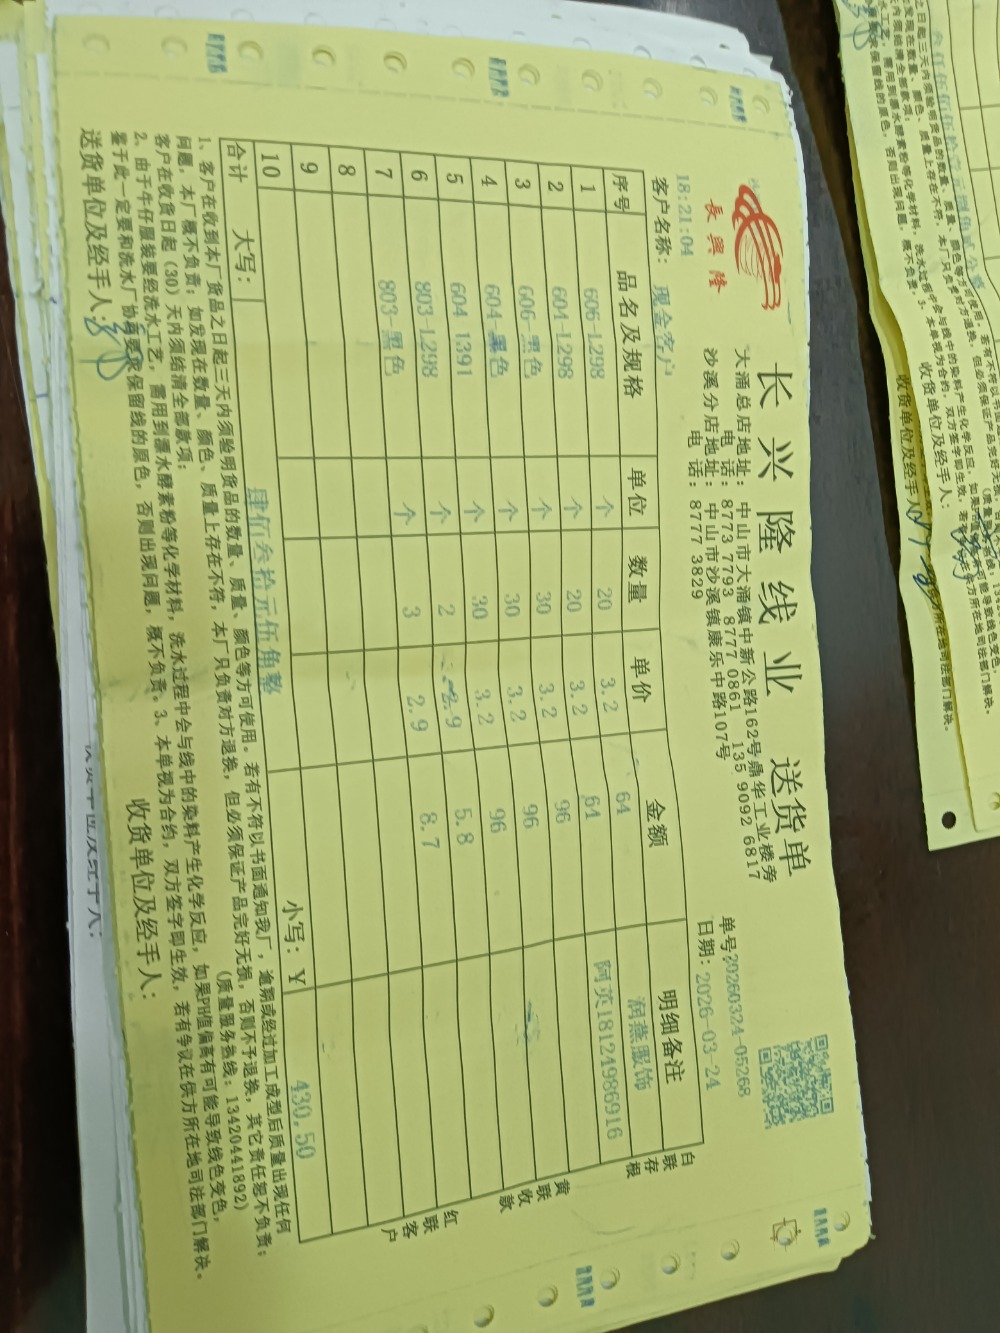 長興隆
长兴隆线业 送货单
大涌总店地址：中山市大涌镇中新公路162号鼎华工业楼旁
电 话：8773 7793 8777 0861 135 9092 6817
沙溪分店地址：中山市沙溪镇康乐中路107号
电 话：8777 3829
单号:20260324-05268
日期：2026-03-24
18:21:04
客户名称：现金客户
序号 品名及规格 单位 数量 单价 金额 明细备注
1 606-L298 个 20 3.2 64 润燕服饰
2 604-L298 个 20 3.2 64 阿英18124986916
3 606-黑色 个 30 3.2 96
4 604-黑色 个 30 3.2 96
5 604 1391 个 30 3.2 96
6 803-L298 个 2 2.9 5.8
7 803-黑色 个 3 2.9 8.7
8
9
10
合计 大写： 肆佰叁拾元伍角整 小写：Y 430.50
1、客户在收到本厂货品之日起三天内须验明货品的数量、质量、颜色等方可使用。若有不符以书面通知我厂，逾期或经过加工成型后质量出现任何
问题，本厂概不负责；如发现在数量、颜色、质量上存在不符，本厂只负责对方退换，但必须保证产品完好无损，否则不予退换，其它责任恕不负责；
客户在收货日起（30）天内须结清全部款项； （质量服务热线：13420441892）
2、由于牛仔服装要经洗水工艺，需用到漂水酵素粉等化学材料，洗水过程中会与线中的染料产生化学反应，如果PH值偏高有可能导致线色变色，
鉴于此一定要和洗水厂协商要求保留线的原色，否则出现问题，概不负责。3、本单视为合约，双方签字即生效，若有争议在供方所在地司法部门解决。
送货单位及经手人： 收货单位及经手人：
白联存根
黄联收款
红联客户
收货单位及经手人：